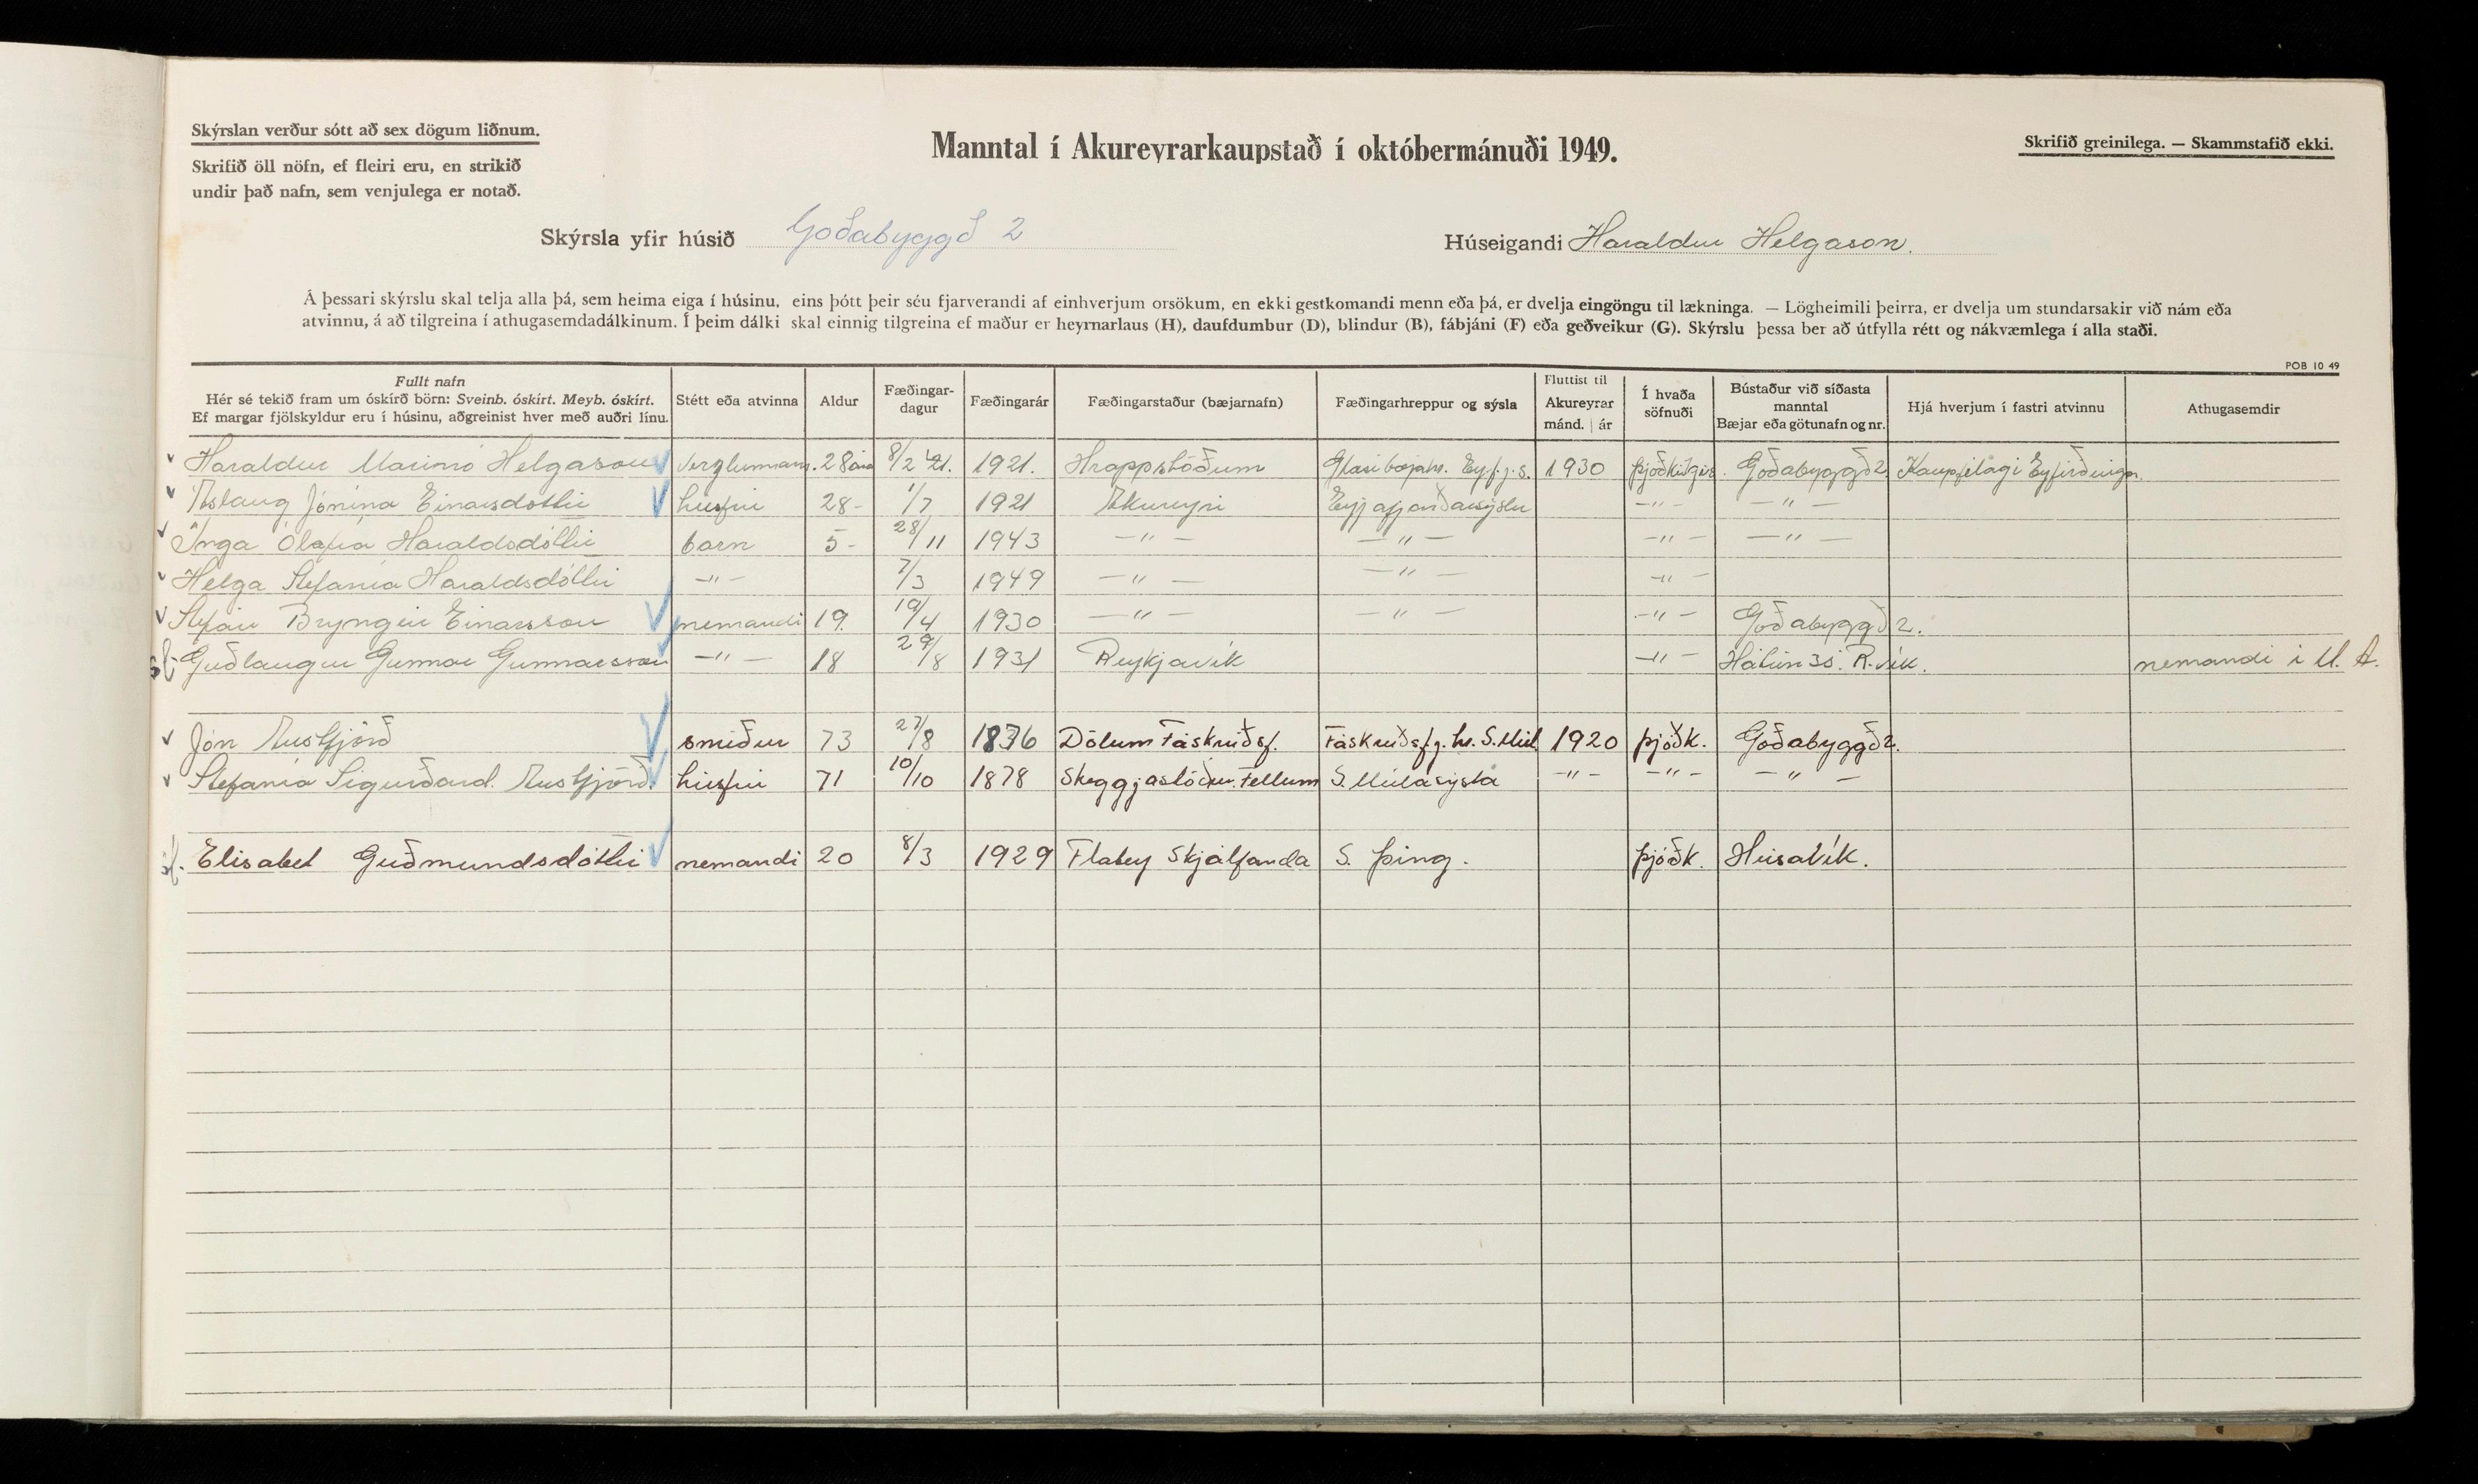 Skýrslan verður sótt að sex dögum liðnum.
Skrifið öll nöfn, ef fleiri eru, en strikið
undir það nafn, sem venjulega er notað.
Manntal í Akureyrarkaupstað í októbermánuði 1949.
Skrifið greinilega. — Skammstafið ekki.
Skýrsla yfir húsið Goðabyggð 2
Húseigandi Haraldur Helgason.
Á þessari skýrslu skal telja alla þá, sem heima eiga í húsinu, eins þótt þeir séu fjarverandi af einhverjum orsökum, en ekki gestkomandi menn eða þá, er dvelja eingöngu til lækninga. — Lögheimili þeirra, er dvelja um stundarsakir við nám eða
atvinnu, á að tilgreina í athugasemdadálkinum. Í þeim dálki skal einnig tilgreina ef maður er heyrnarlaus (H), daufdumbur (D), blindur (B), fábjáni (F) eða geðveikur (G). Skýrslu þessa ber að útfylla rétt og nákvæmlega í alla staði.
POB 10 49
Fullt nafn
Hér sé tekið fram um óskírð börn: Sveinb. óskírt. Meyb. óskírt.
Ef margar fjölskyldur eru í húsinu, aðgreinist hver með auðri línu.
Stétt eða atvinna
Aldur
Fæðingar-
dagur
Fæðingarár
Fæðingarstaður (bæjarnafn)
Fæðingarhreppur og sýsla
Fluttist til
Akureyrar
mánd. | ár
Í hvaða
söfnuði
Bústaður við síðasta
manntal
Bæjar eða götunafn og nr.
Hjá hverjum í fastri atvinnu
Athugasemdir
Haraldur Marinó Helgason verzlunarm. 28 ára 8/2 '21. 1921. Hrappstöðum Glæsibæjahr. Eyf.j.s. 1930 þjóðkirkjus. Goðabyggð 2 Kaupfélagi Eyfirðinga.
Áslaug Jónína Einarsdóttir húsfrú 28 - 1/7 1921 Akureyri Eyjafjarðarsýslu -"- -"-
Inga Ólafía Haraldsdóttir barn 5 - 28/11 1943 -"- -"- -"- -"-
Helga Stefanía Haraldsdóttir -"- 7/3 1949 -"- -"- -"-
Stefán Bryngeir Einarsson nemandi 19. 19/4 1930 -"- " -"- Goðabyggð 2.
Guðlaugur Gunnar Gunnarsson -"- 18 29/8 1931 Reykjavík -"- Hátún 35. R.vík. nemandi í M. A.
Jón Austfjörð smiður 73 27/8 1876 Dölum Fáskrúðsf. Fáskrúðsfj. hr. S. Múl 1920 þjóðk. Goðabyggð 2.
Stefanía Sigurðard. Austfjörð. húsfrú 71 10/10 1878 Skeggjastöðum. Fellum S. Múlasýsla -"- -"- -"-
Elisabet Guðmundsdóttir nemandi 20 8/3 1929 Flatey Skjálfanda S. Þing. þjóðk. Húsavík.